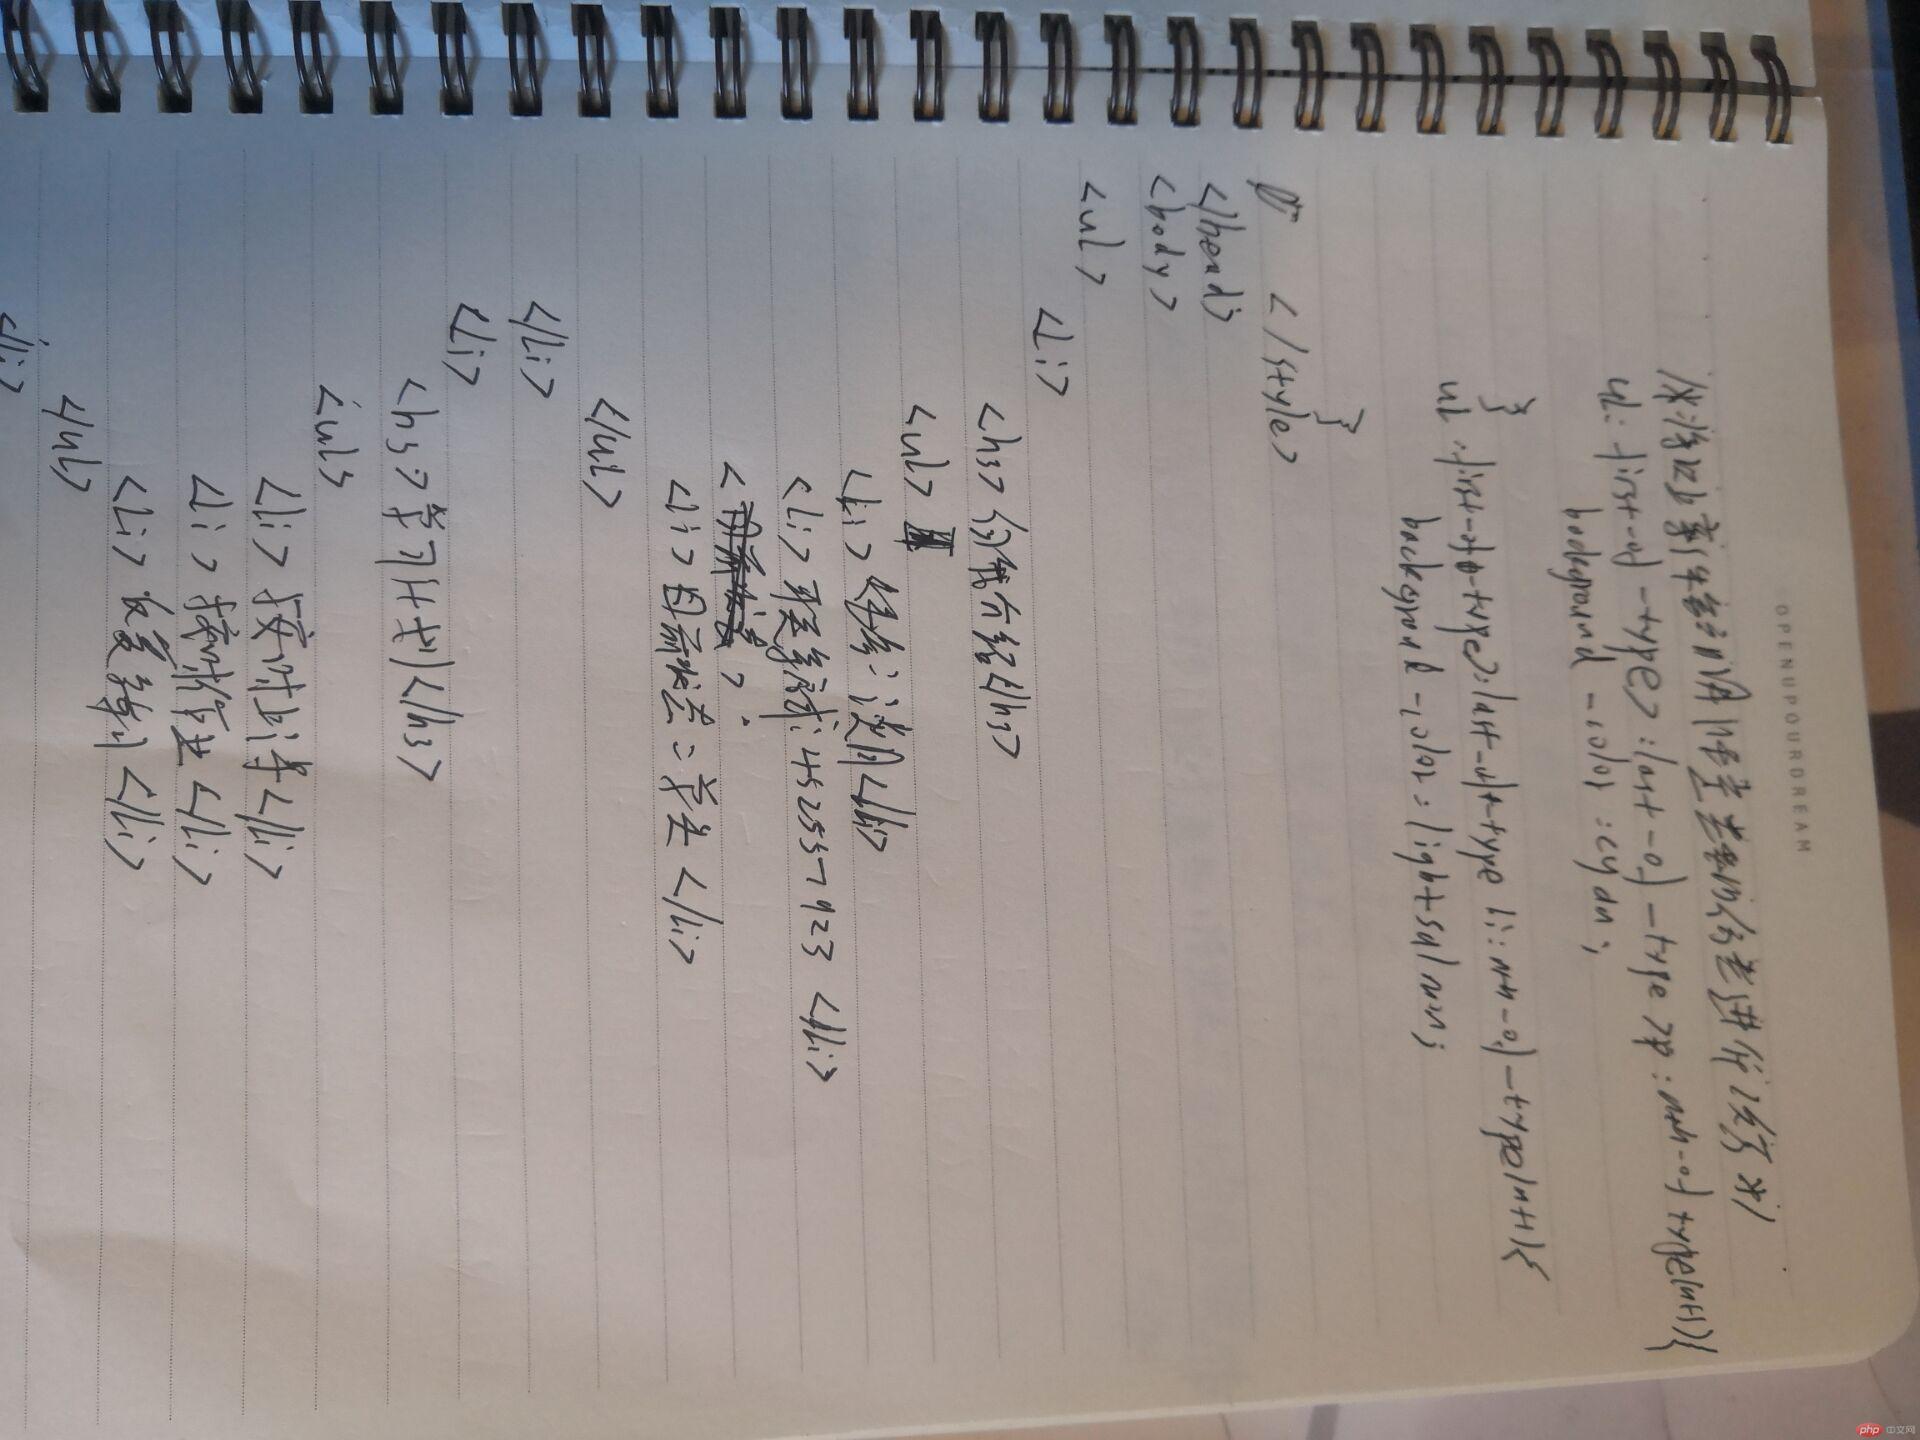 OPENUPOURDREAM
ul:first-of-type>:last-of-type>p:nth-of-type(n+1){
background-color:cyan;
}
ul:first-of-type>:last-of-type li:nth-of-type(n+1){
background-color:lightsalmon;
}
</style>
</head>
<body>
<ul>
<li>
<h3>自我介绍</h3>
<ul>
<li>姓名：</li>
<li>联系方式:452557923</li>
<li>目前状态：学生</li>
</ul>
</li>
<li>
<h3>学习计划</h3>
<ul>
<li>按时上课</li>
<li>按时作业</li>
<li>反复练习</li>
</ul>
</li>
php 中文网